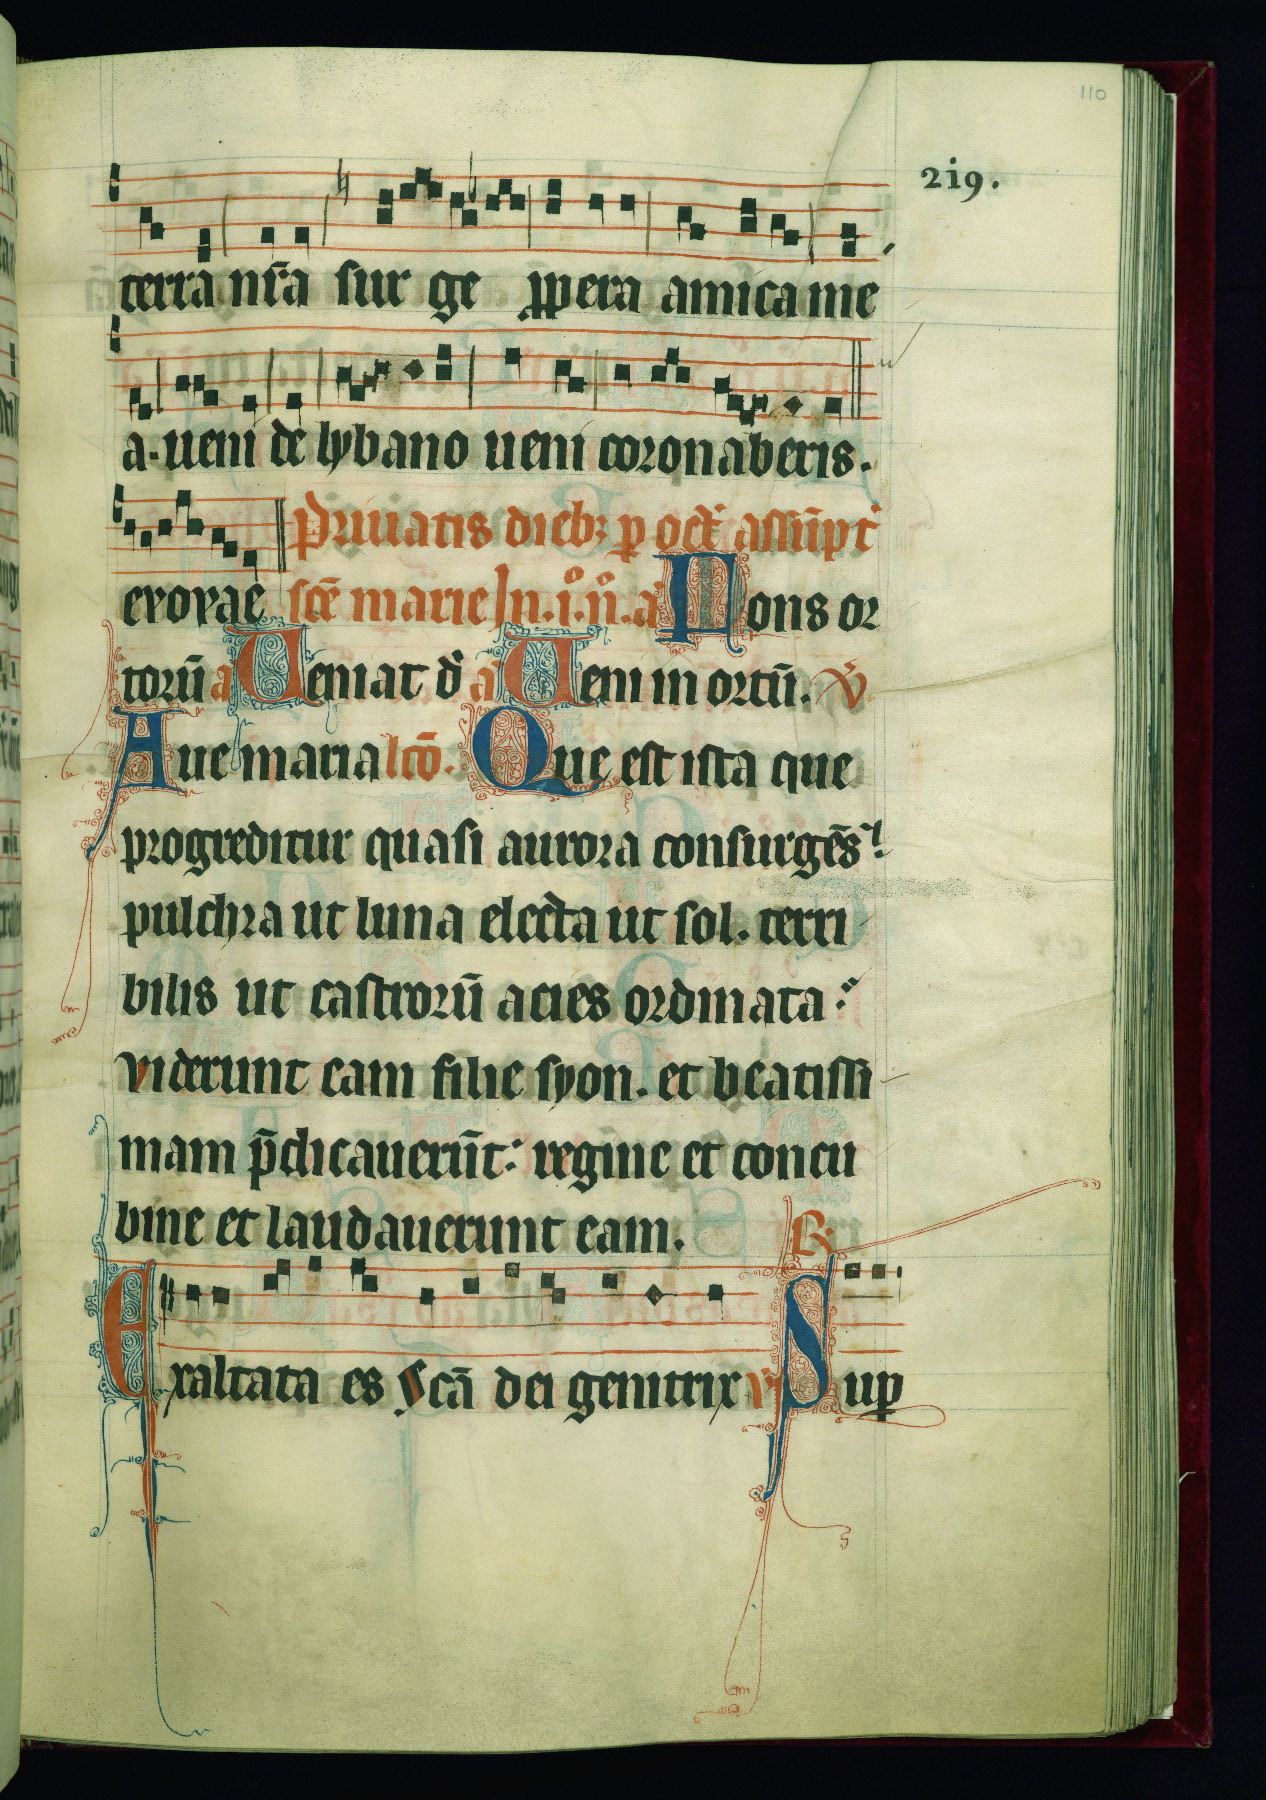 110
219.
terra nr̃a sur ge ꝓpera amica me
a. ueni de lybano ueni coronaberis.
Priuatis dieb; p̱ oct̃ assũpt̃
evovae sc̃e marie In .i. n̊. a Fons or
torũ a Ueniat d̃ a Ueni in ortũ. ℣
Aue maria lc̃o. Que est ista que
progreditur quasi aurora consurgẽs
pulchra ut luna electa ut sol. terri
bilis ut castrorũ acies ordinata
viderunt eam filie syon. et beatissi
mam p̃dicauerũt: regine et concu
bine et laudauerunt eam. ℟
Exaltata es scã dei genitrix ℣ Suꝑ